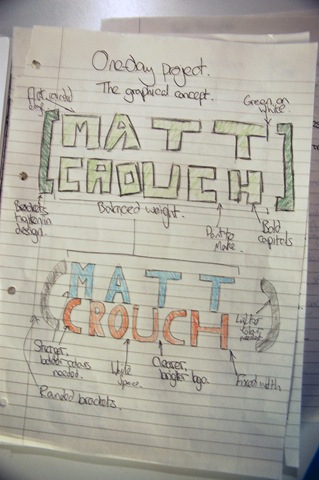 One day project.
The graphical concept.
Green on
white
MATT
CROUCH
Brackets
design
Balanced weight.
Bold
capitals
MATT
CROUCH
Stronger,
bolder colours
needed.
White
space
Cleaner,
brighter logo
Fixed width
Lighter
needed
Rounded brackets.